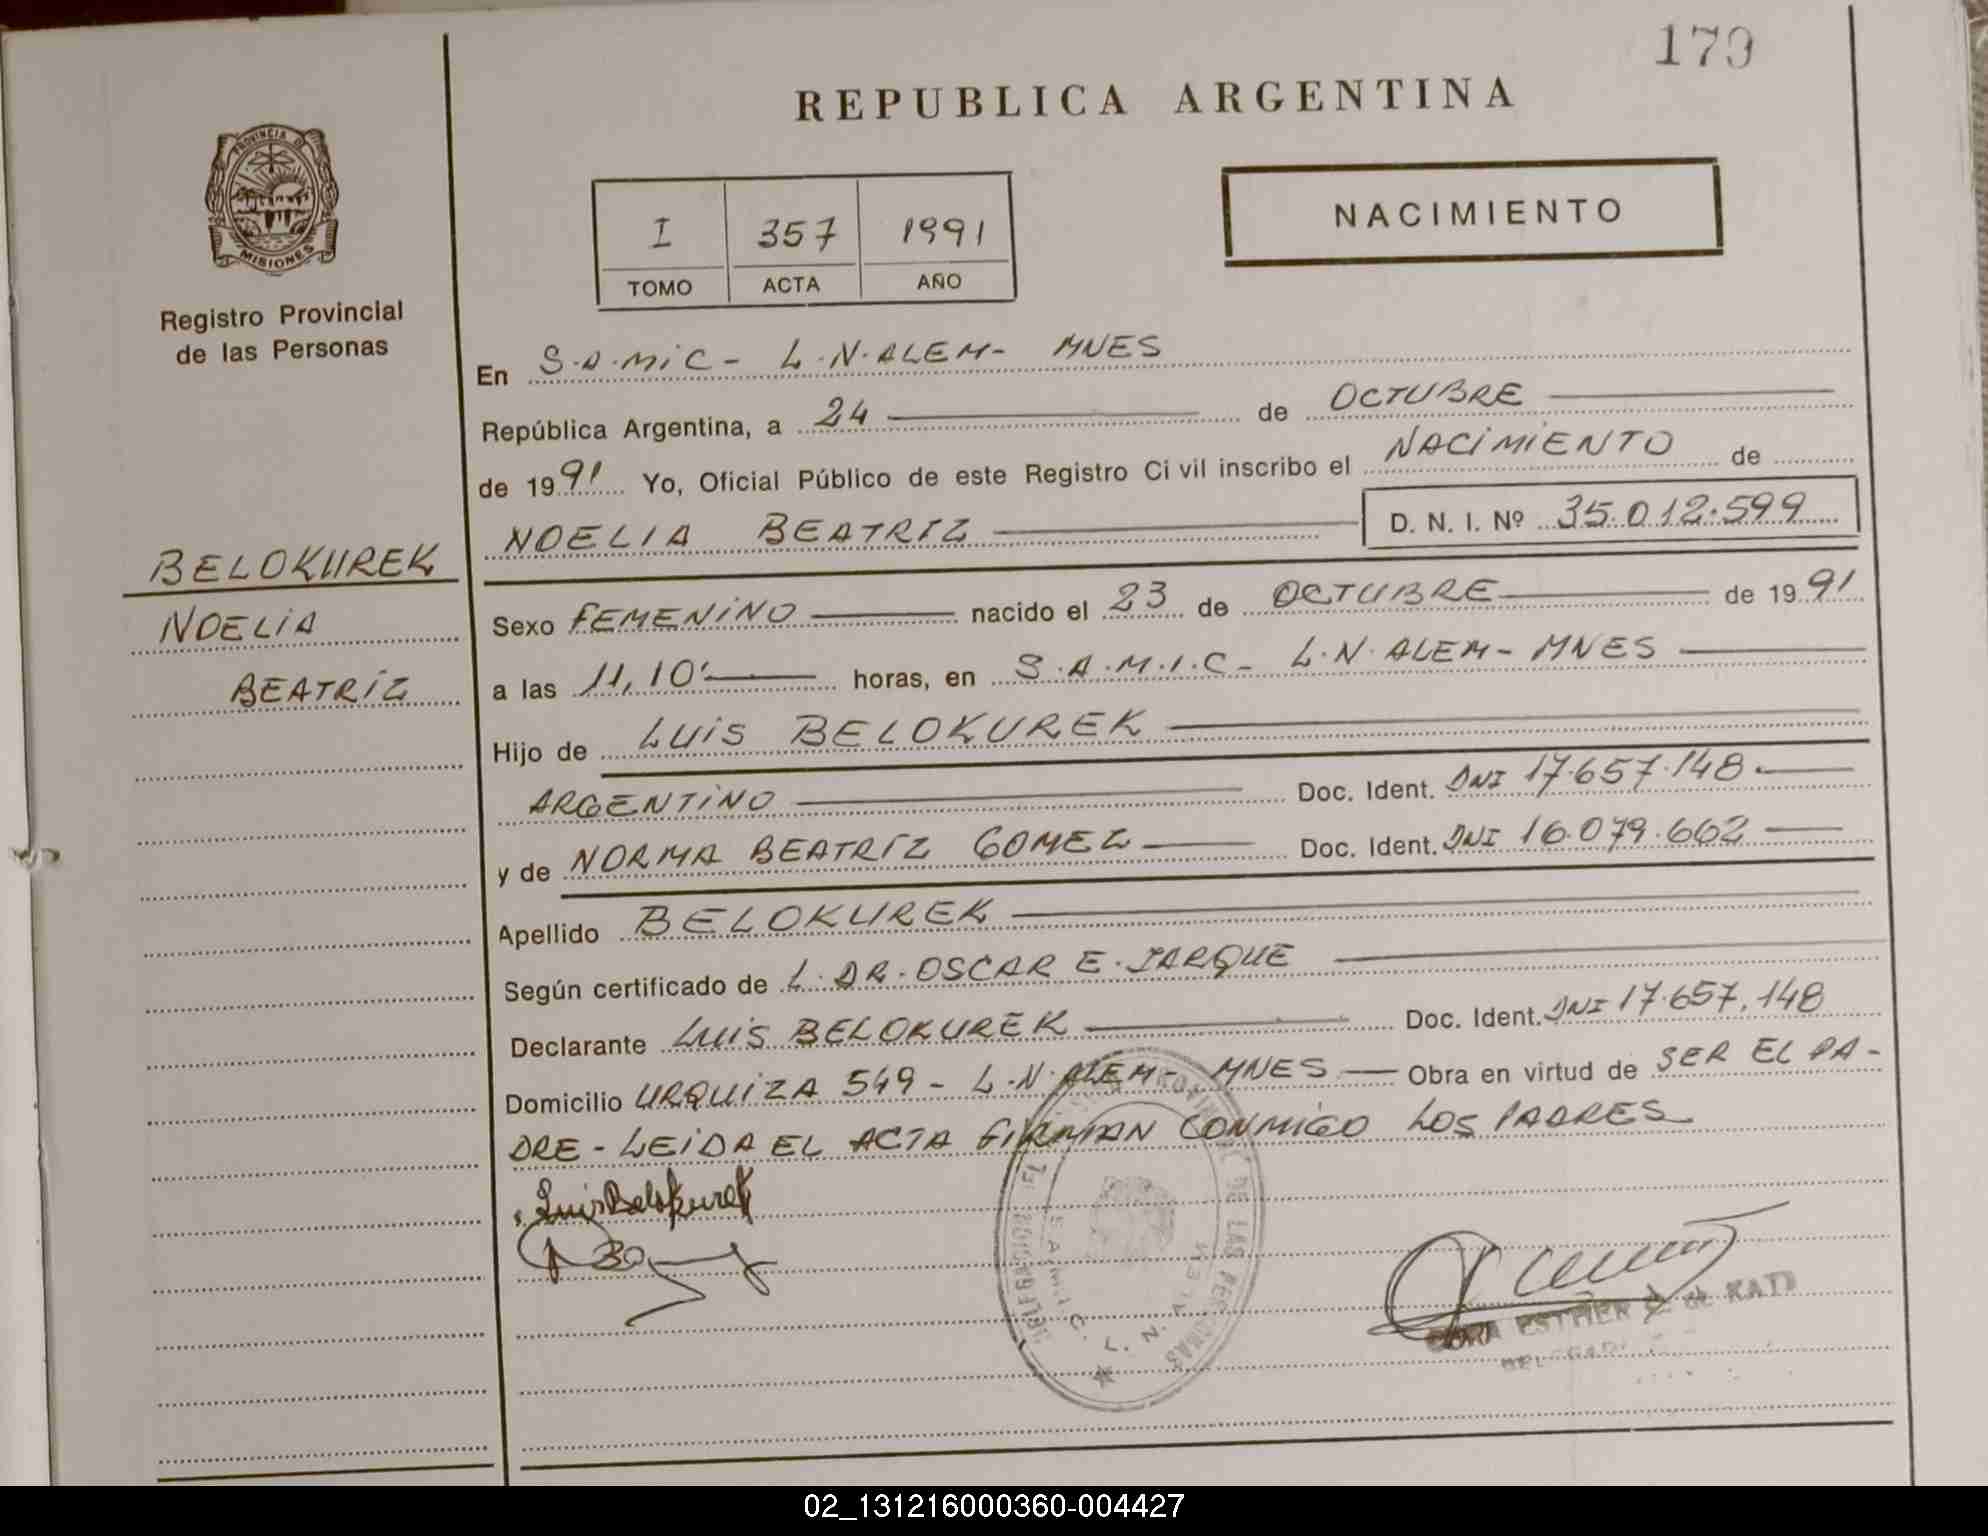 179
REPUBLICA ARGENTINA
PROVINCIA DE
MISIONES
Registro Provincial
de las Personas
I 357 1991
TOMO ACTA AÑO
NACIMIENTO
En S.A.MiC - L.N.ALEM - MNES
República Argentina, a 24 de OCTUBRE
de 1991 Yo, Oficial Público de este Registro Civil inscribo el NACIMIENTO de
NOELIA BEATRIZ D. N. I. Nº 35.012.599
BELOKUREK
NOELIA
BEATRIZ
Sexo FEMENINO nacido el 23 de OCTUBRE de 1991
a las 11,10' horas, en S.A.M.I.C - L.N.ALEM - MNES
Hijo de LUIS BELOKUREK
ARGENTINO Doc. Ident. DNI 17.657.148
y de NORMA BEATRIZ GOMEZ Doc. Ident. DNI 16.079.662
Apellido BELOKUREK
Según certificado de L. DR. OSCAR E. JARQUE
Declarante LUIS BELOKUREK Doc. Ident. DNI 17.657.148
Domicilio URQUIZA 549 - L.N.ALEM - MNES Obra en virtud de SER EL PA-
DRE - LEIDA EL ACTA FIRMAN CONMIGO LOS PADRES
Luis Belokurek
DE LAS PERSONAS
S.A.M.I.C. L. N. ALEM
ESTHER de KATZ
02_131216000360-004427